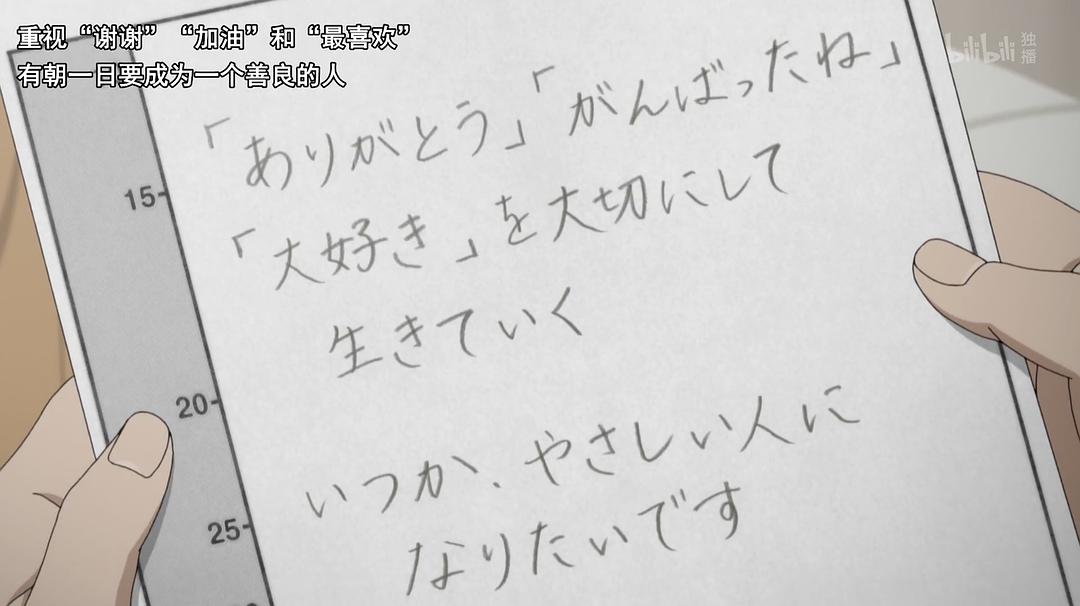 重视“谢谢”“加油”和“最喜欢”
有朝一日要成为一个善良的人
bilibili 独播
「ありがとう」「がんばったね」
15
「大好き」を大切にして
生きていく
20
いつか、やさしい人に
25
なりたいです